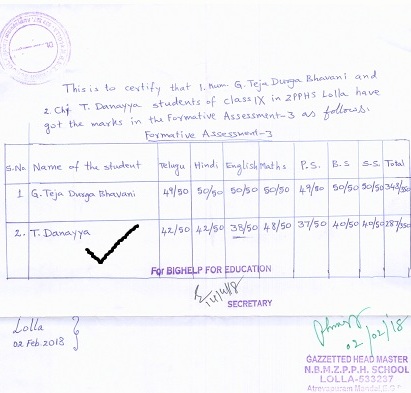 This is to certify that 1. Kum G. Teja Durga Bhavani and
2. Chi T. Danayya students of class IX in ZPPHS Lolla have
got the marks in the Formative Assessment-3 as follows.
Formative Assessment-3
S.No Name of the student Telugu Hindi English Maths P.S. B.S S.S. Total
1 G. Teja Durga Bhavani 49/50 50/50 50/50 50/50 49/50 50/50 50/50 348/350
2. T. Danayya 42/50 42/50 38/50 48/50 37/50 40/50 40/50 287/350
For BIGHELP FOR EDUCATION
SECRETARY
Lolla
02 Feb 2018
02/02/18
GAZZETTED HEAD MASTER
N.B.M.Z.P.P.H. SCHOOL
LOLLA-533237
Atreyapuram Mandal, E.G.